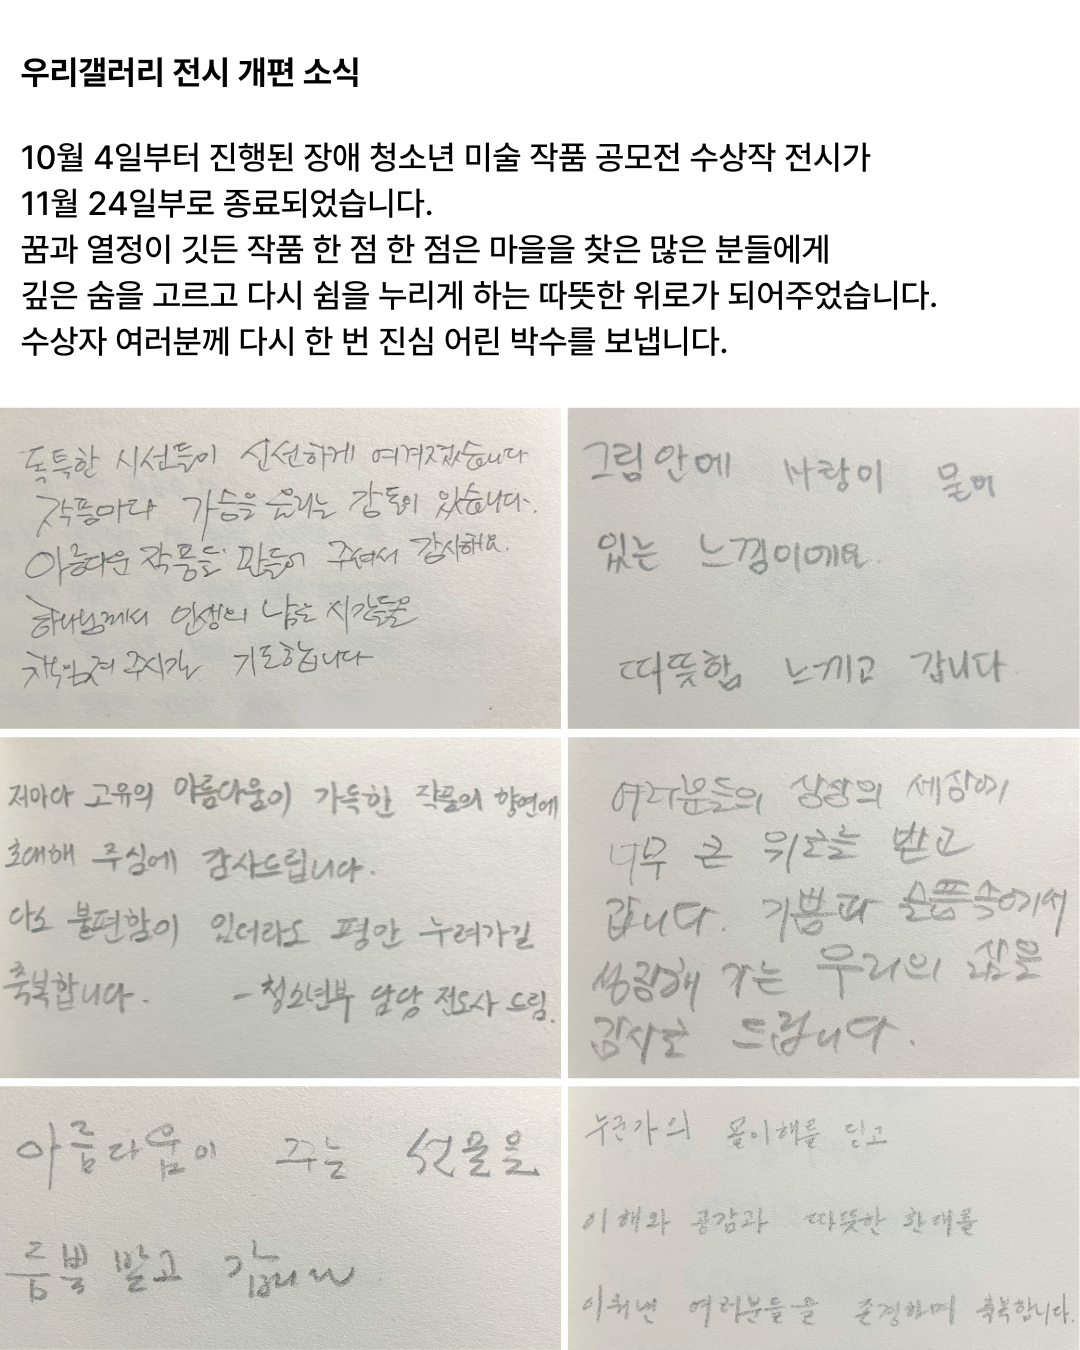 우리갤러리 전시 개편 소식
10월 4일부터 진행된 장애 청소년 미술 작품 공모전 수상작 전시가
11월 24일부로 종료되었습니다.
꿈과 열정이 깃든 작품 한 점 한 점은 마을을 찾은 많은 분들에게
깊은 숨을 고르고 다시 쉼을 누리게 하는 따뜻한 위로가 되어주었습니다.
수상자 여러분께 다시 한 번 진심 어린 박수를 보냅니다.
독특한 시선들이 신선하게 여겨졌습니다
작품마다 가슴을 울리는 감동이 있습니다.
아름다운 작품들 만들어 주셔서 감사해요.
하나님께서 인생의 남은 시간들을
책임져 주시길 기도합니다
그림 안에 사랑이 묻어
있는 느낌이에요.
따뜻함 느끼고 갑니다
저마다 고유의 아름다움이 가득한 작품의 향연에
초대해 주심에 감사드립니다.
다소 불편함이 있더라도 평안 누려가길
축복합니다.
- 청소년부 담당 전도사 드림.
여러분들의 상상의 세상에
너무 큰 위로를 받고
갑니다. 기쁨과 슬픔속에서
성장해 가는 우리의 삶을
감사로 드립니다.
아름다움이 주는 선물을
듬뿍 받고 갑니다
누군가의 몰이해를 딛고
이해와 공감과 따뜻한 환대를
이뤄낸 여러분들을 존경하며 축복합니다.